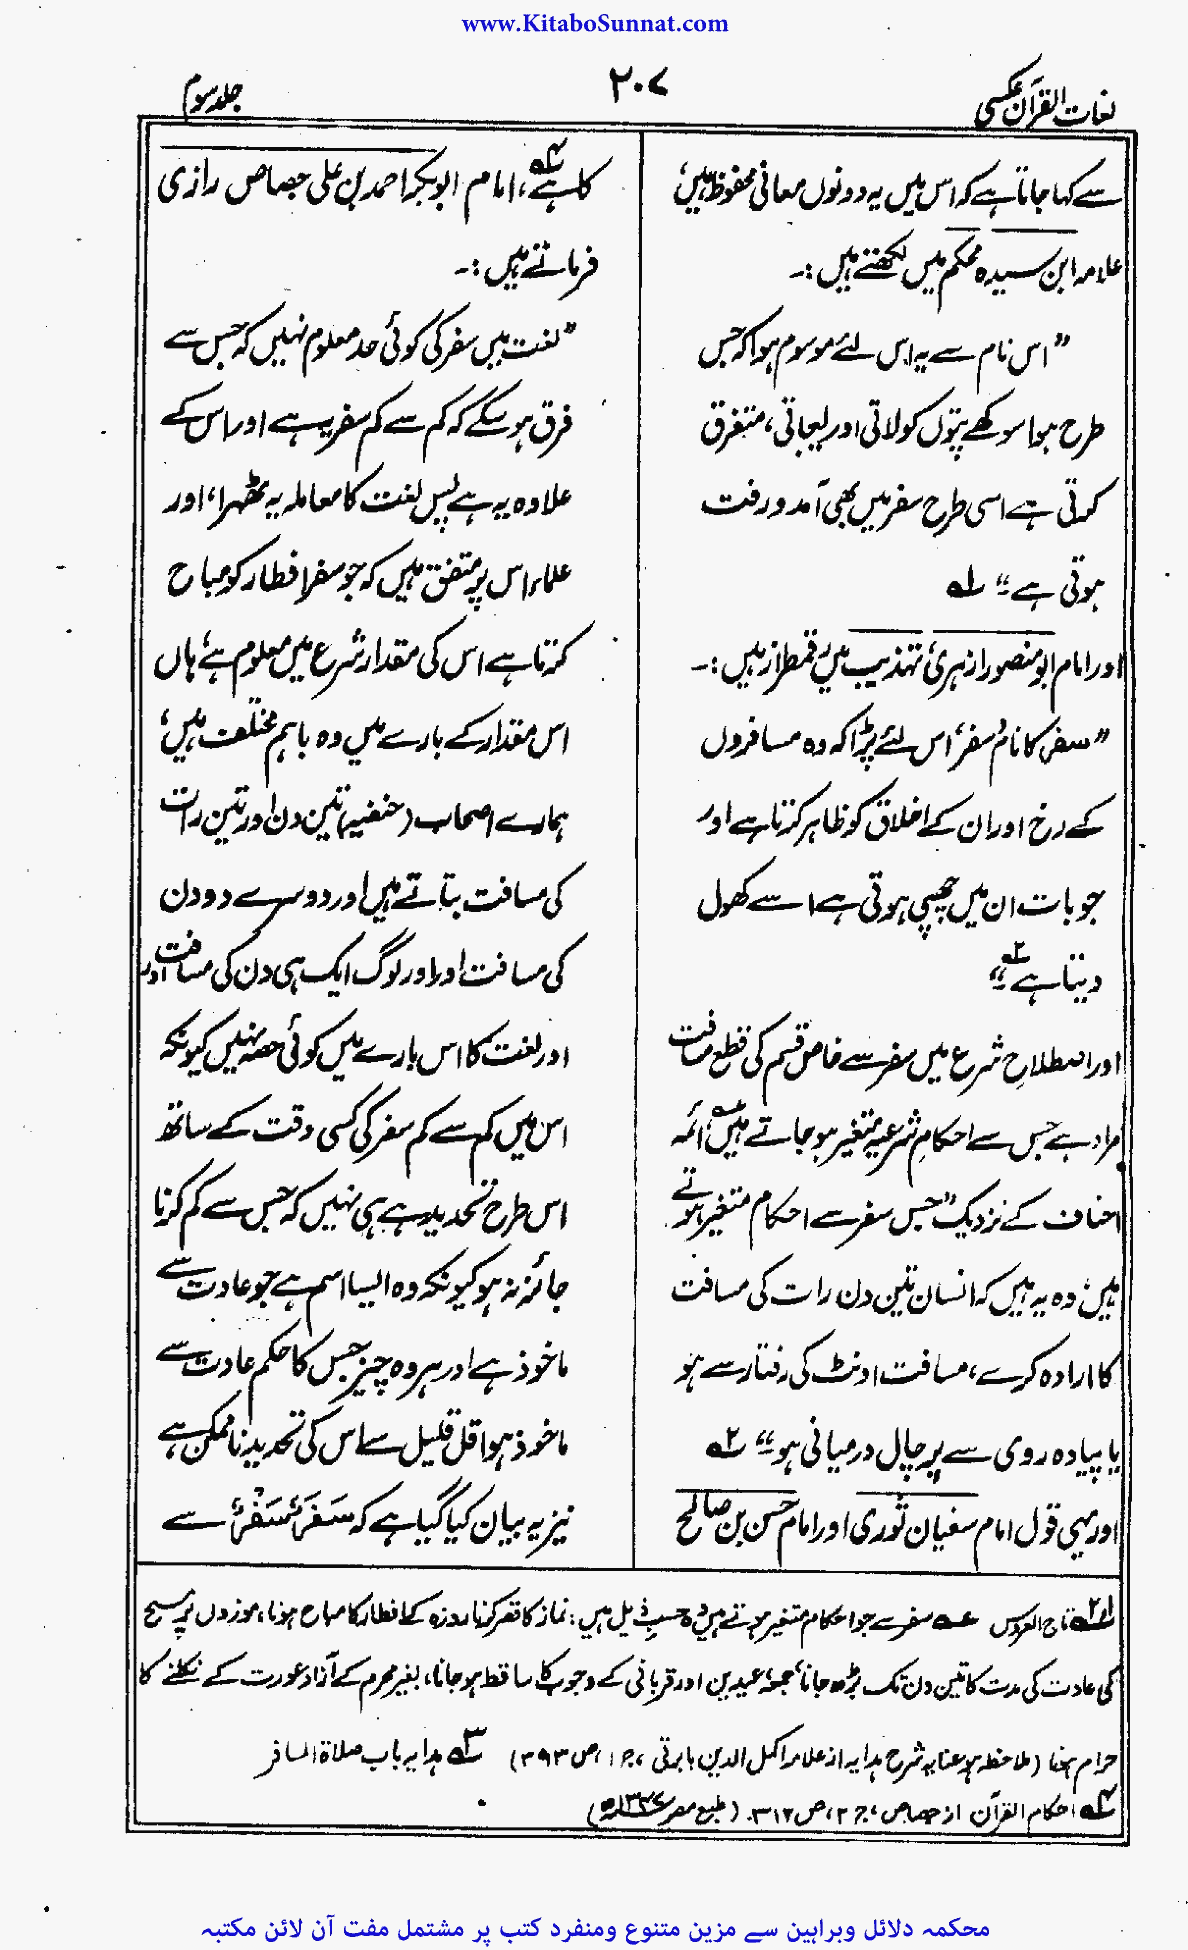 www.KitaboSunnat.com
لغات القرآن عکسی
۲۰۷
جلد سوم
سے کہا جاتا ہے کہ اس میں یہ دونوں معانی محفوظ ہیں،
علامہ ابن سیدہ محکم میں لکھتے ہیں :۔
" اس نام سے یہ اس لئے موسوم ہوا کہ جس
طرح ہوا سوکھے پتوں کو لاتی اور لیجاتی، متفرق
کرتی ہے اسی طرح سفر میں بھی آمد و رفت
ہوتی ہے " ۱ھ
اور امام ابو منصور ازہری، تہذیب میں رقمطراز ہیں :۔
" سفر کا نام سفر، اس لئے پڑا کہ وہ مسافروں
کے رخ اور ان کے اخلاق کو ظاہر کرتا ہے اور
جو بات ان میں چھپی ہوتی ہے اسے کھول
دیتا ہے " ۲ھ
اور اصطلاحِ شرع میں سفر سے خاص قسم کی قطع مسافت
مراد ہے جس سے احکامِ شرعیہ متغیر ہو جاتے ہیں، ائمہ
احناف کے نزدیک " جس سفر سے احکام متغیر ہوتے
ہیں، وہ یہ ہیں کہ انسان تین دن رات کی مسافت
کا ارادہ کرے، مسافت اونٹ کی رفتار سے ہو
یا پیادہ روی سے پر چال درمیانی ہو " ۲ھ
اور یہی قول امام سفیان ثوری اور امام حسن بن صالح
کا ہے ۴ھ، امام ابوبکر احمد بن علی جصاص رازی
فرماتے ہیں :۔
" لغت میں سفر کی کوئی حد معلوم نہیں کہ جس سے
فرق ہو سکے کہ کم سے کم سفر یہ ہے اور اس کے
علاوہ یہ ہے پس لغت کا معاملہ یہ ٹھہرا، اور
علماء اس پر متفق ہیں کہ جو سفر افطار کو مباح
کرتا ہے اس کی مقدار شرع میں معلوم ہے، ہاں
اس مقدار کے بارے میں وہ باہم مختلف ہیں،
ہمارے اصحاب (حنفیہ) تین دن اور تین رات
کی مسافت بتاتے ہیں اور دوسرے دو دن
کی مسافت اور اور لوگ ایک ہی دن کی مسافت اور
اور لغت کا اس بارے میں کوئی حصہ نہیں کیونکہ
اس میں کم سے کم سفر کی کسی وقت کے ساتھ
اس طرح تحدید ہے ہی نہیں کہ جس سے کم کرنا
جائز نہ ہو کیونکہ وہ ایسا اسم ہے جو عادت سے
ماخوذ ہے اور ہر وہ چیز جس کا حکم عادت سے
ماخوذ ہو اقل قلیل سے اس کی تحدید ناممکن ہے
نیز یہ بیان کیا گیا ہے کہ سَفَرٌ، سَفْرٌ سے
۱،۲ھ تاج العروس ھ سفر سے جو احکام متغیر ہوتے ہیں وہ حسبِ ذیل ہیں : نماز کا قصر کرنا، روزہ کے افطار کا مباح ہونا، موزوں پر مسح
کی عادت کی مدت کا تین دن تک بڑھ جانا، جمعہ، عیدین اور قربانی کے وجوب کا ساقط ہو جانا، بغیر محرم کے آزاد عورت کے نکلنے کا
حرام ہونا (ملاحظہ ہو عنایہ شرح ہدایہ از علامہ اکمل الدین بابرتی ، ج ۱، ص ۳۹۳) ۳ھ ہدایہ باب صلاۃ المسافر
۴ھ احکام القرآن از جصاص، ج ۲، ص ۳۱۲۔ (طبع مصر ۱۳۴۷ھ)
محکمہ دلائل وبراہین سے مزین متنوع ومنفرد کتب پر مشتمل مفت آن لائن مکتبہ